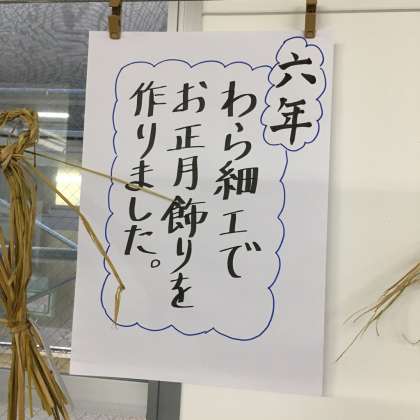 六年
わら細工で
お正月飾りを
作りました。